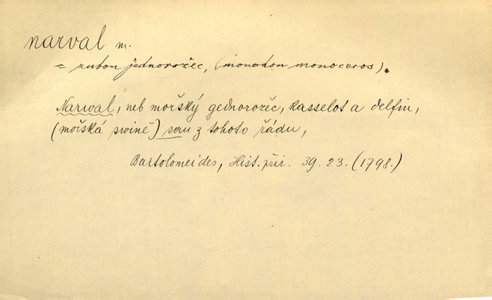 narval m.
= zubon jednorožec, (monodon monoceros).
Narwal, neb mořský gednorožec, kasselot a delfin,
(mořská swině) sau z tohoto řádu,
Bartolomeides, Hist. při. 39. 23. (1798.)